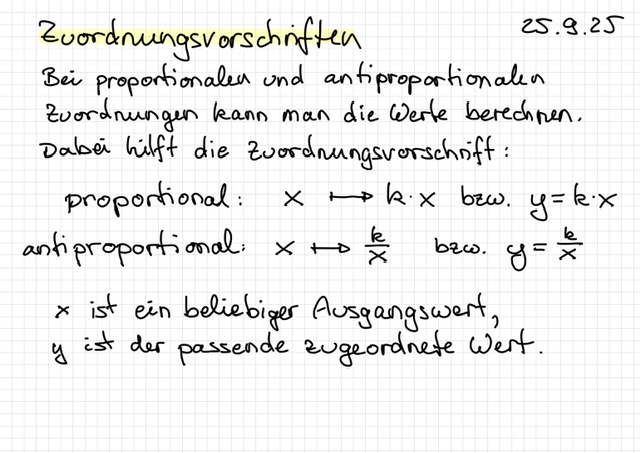 Zuordnungsvorschriften 25.9.25
Bei proportionalen und antiproportionalen
Zuordnungen kann man die Werte berechnen.
Dabei hilft die Zuordnungsvorschrift:
proportional: x ↦ k·x bzw. y=k·x
antiproportional: x ↦ k/x bzw. y = k/x
x ist ein beliebiger Ausgangswert,
y ist der passende zugeordnete Wert.